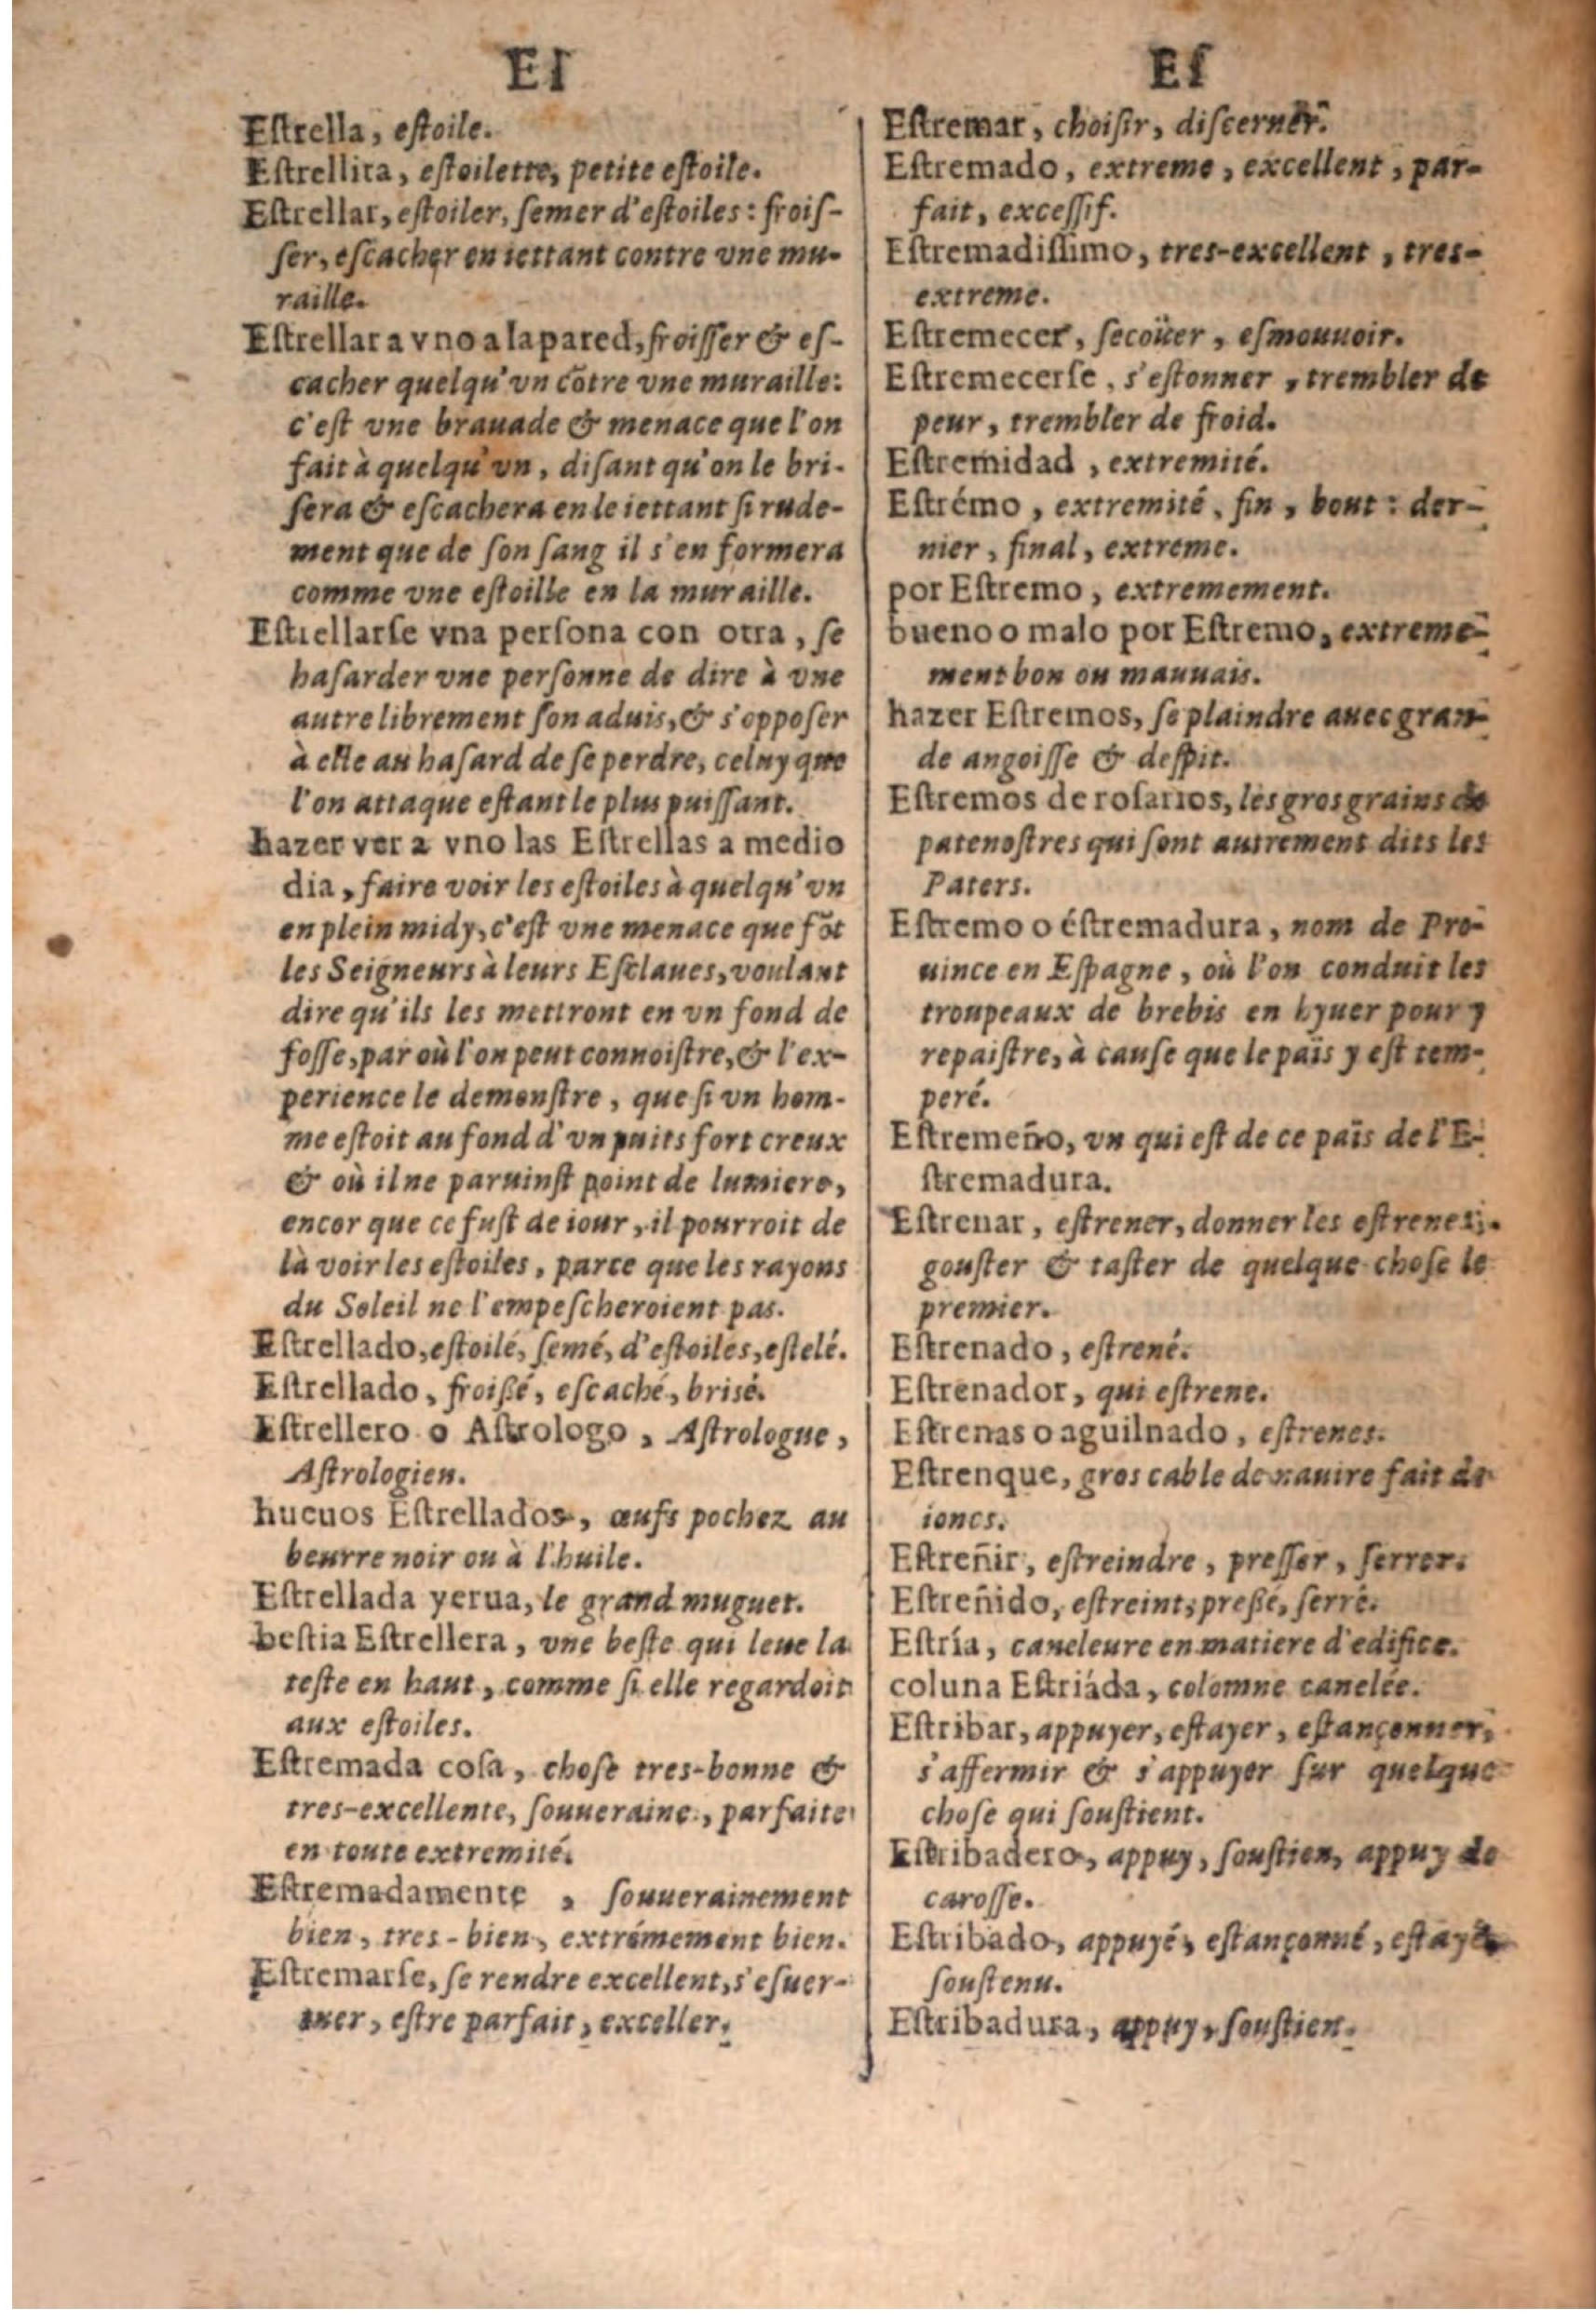 Eſ
Eſtrella, eſtoile.
Eſtrellita, eſtoilette, petite eſtoile.
Eſtrellar, eſtoiler, ſemer d'eſtoiles: froiſ-
ſer, eſcacher en iettant contre vne mu-
raille.
Eſtrellar a vno a la pared, froiſſer & eſ-
cacher quelqu'vn cõtre vne muraille:
c'eſt vne brauade & menace que l'on
fait à quelqu'vn, diſant qu'on le bri-
ſera & eſcachera en le iettant ſi rude-
ment que de ſon ſang il s'en formera
comme vne eſtoille en la muraille.
Eſtrellarſe vna perſona con otra, ſe
haſarder vne perſonne de dire à vne
autre librement ſon aduis, & s'oppoſer
à elle au haſard de ſe perdre, celuy que
l'on attaque eſtant le plus puiſſant.
hazer ver a vno las Eſtrellas a medio
dia, faire voir les eſtoiles à quelqu'vn
en plein midy, c'eſt vne menace que fõt
les Seigneurs à leurs Eſclaues, voulant
dire qu'ils les mettront en vn fond de
foſſe, par où l'on peut connoiſtre, & l'ex-
perience le demonſtre, que ſi vn hom-
me eſtoit au fond d'vn puits fort creux
& où il ne paruinſt point de lumiere,
encor que ce fuſt de iour, il pourroit de
là voir les eſtoiles, parce que les rayons
du Soleil ne l'empeſcheroient pas.
Eſtrellado, eſtoilé, ſemé, d'eſtoiles, eſtelé.
Eſtrellado, froißé, eſcaché, brisé.
Eſtrellero o Aſtrologo, Aſtrologue,
Aſtrologien.
hueuos Eſtrellados, œufs pochez au
beurre noir ou à l'huile.
Eſtrellada yerua, le grand muguet.
beſtia Eſtrellera, vne beſte qui leue la
teſte en haut, comme ſi elle regardoit
aux eſtoiles.
Eſtremada coſa, choſe tres-bonne &
tres-excellente, ſouueraine, parfaite
en toute extremité.
Eſtremadamente, ſouuerainement
bien, tres-bien, extrémement bien.
Eſtremarſe, ſe rendre excellent, s'eſuer-
tuer, eſtre parfait, exceller.
Eſ
Eſtremar, choiſir, diſcerner.
Eſtremado, extreme, excellent, par-
fait, exceſſif.
Eſtremadiſſimo, tres-excellent, tres-
extreme.
Eſtremecer, ſecoüer, eſmouuoir.
Eſtremecerſe, s'eſtonner, trembler de
peur, trembler de froid.
Eſtremidad, extremité.
Eſtrémo, extremité, fin, bout: der-
nier, final, extreme.
por Eſtremo, extremement.
bueno o malo por Eſtremo, extreme-
ment bon ou mauuais.
hazer Eſtremos, ſe plaindre auec gran-
de angoiſſe & deſpit.
Eſtremos de roſarios, les gros grains de
patenoſtres qui ſont autrement dits les
Paters.
Eſtremo o éſtremadura, nom de Pro-
uince en Eſpagne, où l'on conduit les
troupeaux de brebis en hyuer pour y
repaiſtre, à cauſe que le païs y eſt tem-
peré.
Eſtremeño, vn qui eſt de ce païs de l'E-
ſtremadura.
Eſtrenar, eſtrener, donner les eſtrenes;
gouſter & taſter de quelque choſe le
premier.
Eſtrenado, eſtrené.
Eſtrenador, qui eſtrene.
Eſtrenas o aguilnado, eſtrenes.
Eſtrenque, gros cable de nauire fait de
ioncs.
Eſtreñir, eſtreindre, preſſer, ſerrer.
Eſtreñido, eſtreint, preßé, ſerré.
Eſtría, caneleure en matiere d'edifice.
coluna Eſtriáda, colomne canelée.
Eſtribar, appuyer, eſtayer, eſtançonner,
s'affermir & s'appuyer ſur quelque
choſe qui ſouſtient.
Eſtribadero, appuy, ſouſtien, appuy de
caroſſe.
Eſtribado, appuyé, eſtançonné, eſtayé,
ſouſtenu.
Eſtribadura, appuy, ſouſtien.